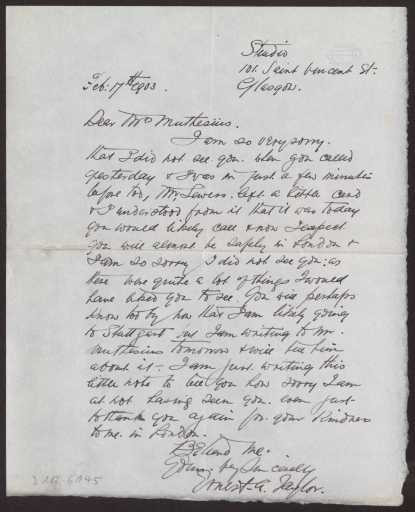 Studio
101. Saint Vincent St.
Glasgow.
Feb: 17th 1903.
Dear Mrs Muthesius.
I am so very sorry.
that I did not see you. when you called
yesterday & I was in just a few minutes
before too, Mr. left a little card
& I understood from it that it was today
you would likely call & now I expect
you will almost be safely in London &
I am so sorry I did not see you: as
there were quite a lot of things I would
have liked you to see. You will perhaps
know too by now that I am likely going
to Stuttgart but I am writing to Mr.
Muthesius tomorrow & will tell him
about it. I am just writing this
little note to tell you how sorry I am
at not having seen you. even just
to thank you again for your kindness
to me. in London.
Believe Me.
Yours very Sincerely
Ernest. A. Taylor.